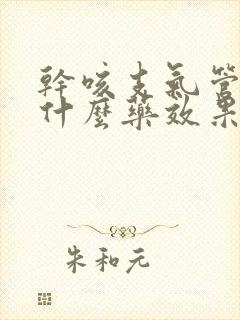 幹咳支氣管
什麼藥效果
朱和元